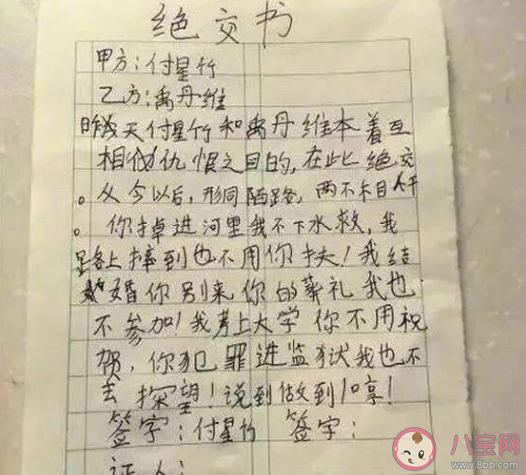 绝交书
甲方：付星竹
乙方：禹丹维
昨天付星竹和禹丹维本着互
相仇恨之目的，在此绝交
。从今以后，形同陌路，两不相干
。你掉进河里我不下水救，我
路上摔到也不用你扶！我结
婚你别来你的葬礼我也
不参加！我考上大学你不用祝
贺，你犯罪进监狱我也不
去探望！说到做到！哼！
签字：付星竹 签字：
证人：
八宝网
www.8bb.com